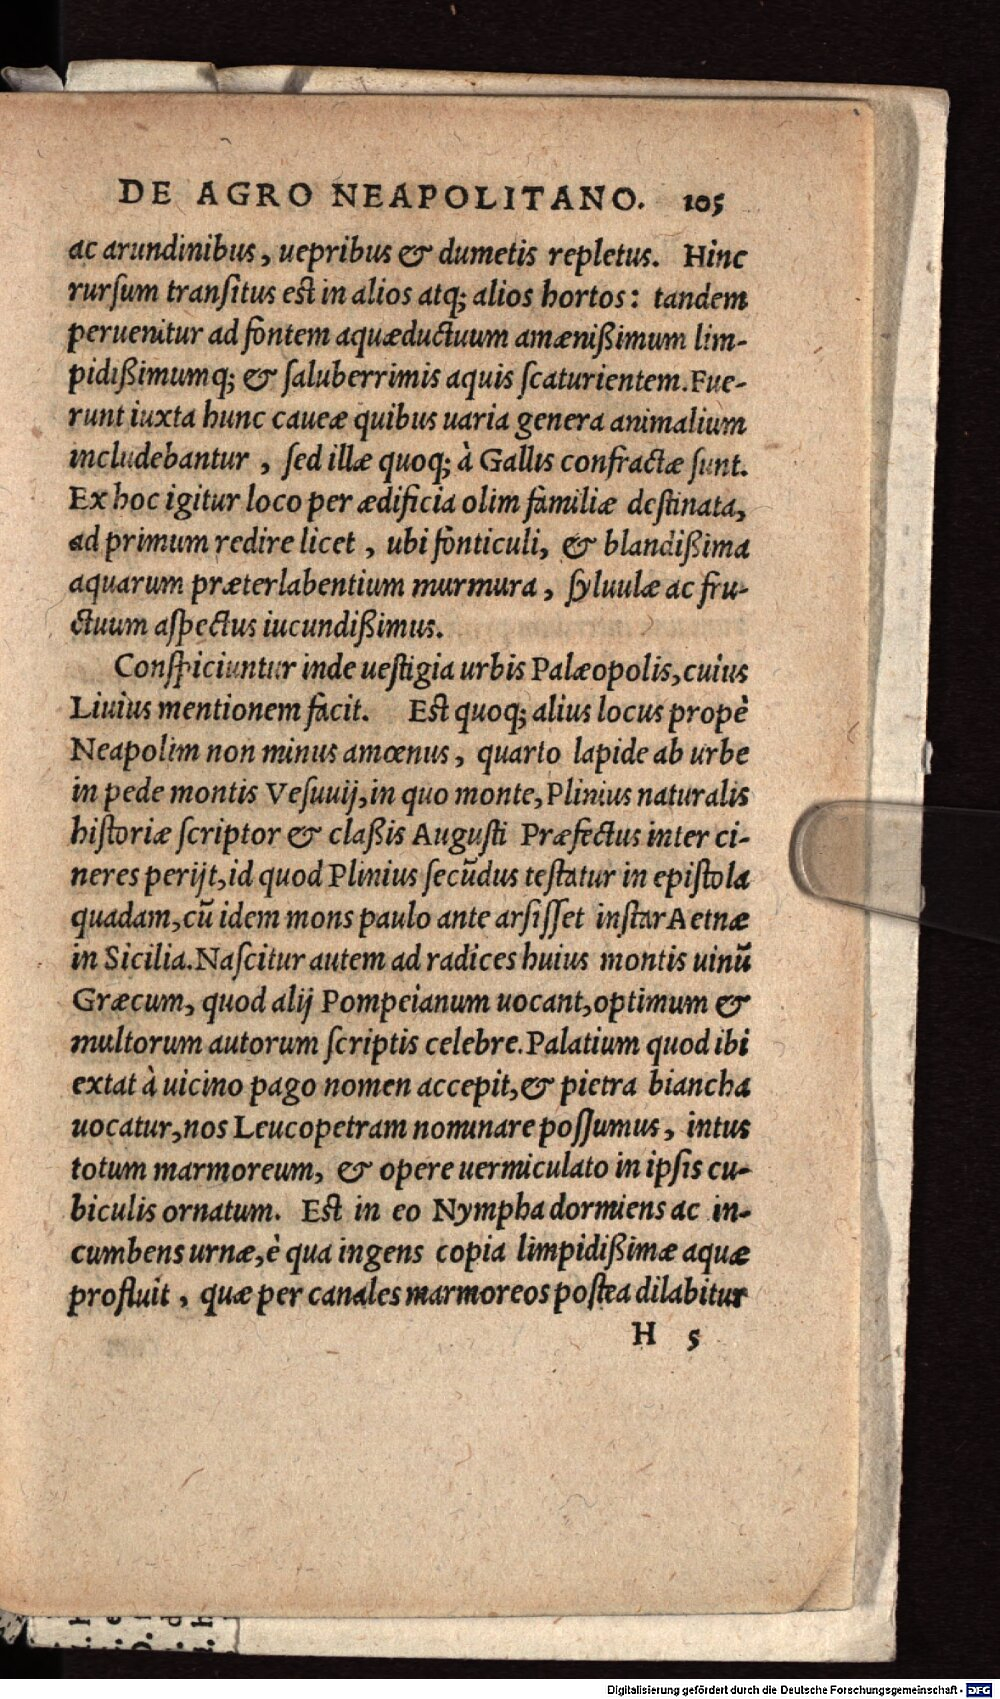 DE AGRO NEAPOLITANO. 105
ac arundinibus, uepribus & dumetis repletus. Hinc
rurſum tranſitus eſt in alios atq; alios hortos: tandem
peruenitur ad fontem aquæductuum amænißimum lim-
pidißimumq; & ſaluberrimis aquis ſcaturientem. Fue-
runt iuxta hunc caueæ quibus uaria genera animalium
includebantur, ſed illæ quoq; à Gallis confractæ ſunt.
Ex hoc igitur loco per ædificia olim familiæ deſtinata,
ad primum redire licet, ubi fonticuli, & blandißima
aquarum præterlabentium murmura, ſyluulæ ac fru-
ctuum aſpectus iucundißimus.
Conſpiciuntur inde ueſtigia urbis Palæopolis, cuius
Liuius mentionem facit. Eſt quoq; alius locus propè
Neapolim non minus amœnus, quarto lapide ab urbe
in pede montis Veſuuij, in quo monte, Plinius naturalis
hiſtoriæ ſcriptor & claßis Auguſti Præfectus inter ci-
neres perijt, id quod Plinius ſecūdus teſtatur in epiſtola
quadam, cū idem mons paulo ante arſiſſet inſtar Aetnæ
in Sicilia. Naſcitur autem ad radices huius montis uinū
Græcum, quod alij Pompeianum uocant, optimum &
multorum autorum ſcriptis celebre. Palatium quod ibi
extat à uicino pago nomen accepit, & pietra biancha
uocatur, nos Leucopetram nominare poſſumus, intus
totum marmoreum, & opere uermiculato in ipſis cu-
biculis ornatum. Eſt in eo Nympha dormiens ac in-
cumbens urnæ, è qua ingens copia limpidißimæ aquæ
profluit, quæ per canales marmoreos poſtea dilabitur
H 5
Digitalisierung gefördert durch die Deutsche Forschungsgemeinschaft - DFG